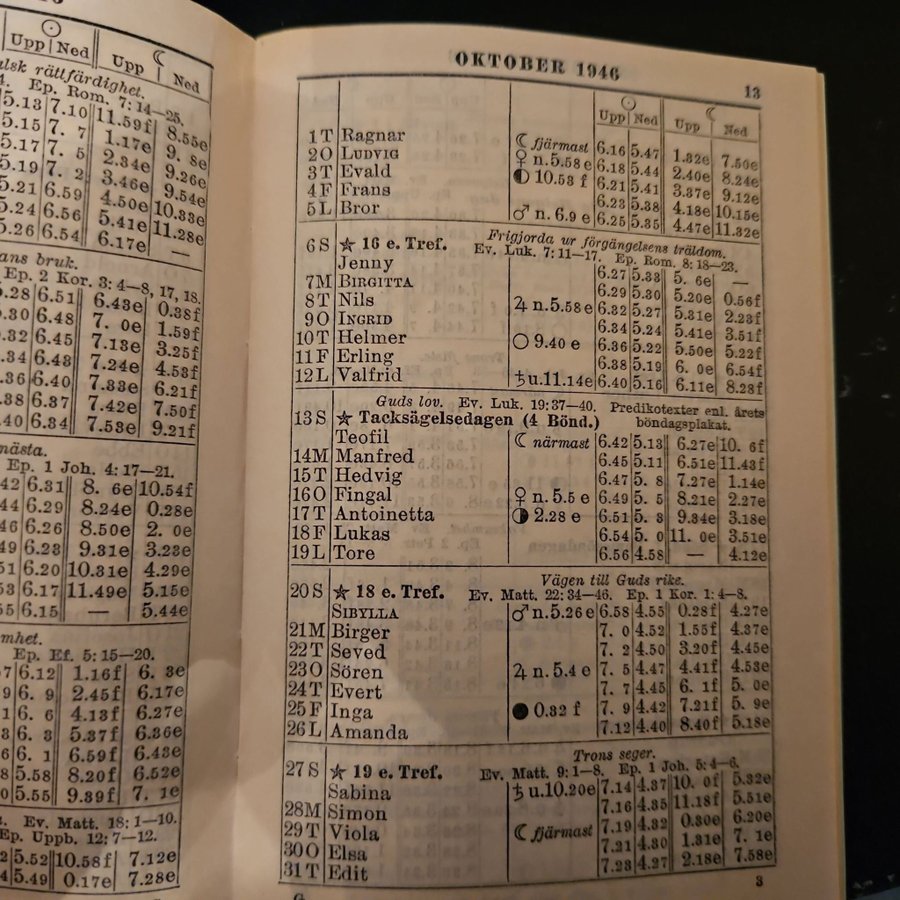 ☉ ☾
Upp Ned Upp Ned
rättfärdighet.
Ep. Rom. 7: 14—25.
5.13 7.10 11.59f 8.55e
5.15 7. 7 1.17e 9. 8e
5.17 7. 5 2.34e 9.26e
5.19 7. 2 3.46e 9.54e
5.21 6.59 4.50e 10.33e
5.24 6.56 5.41e 11.28e
5.26 6.54 6.17e —
bruk.
Ep. 2 Kor. 3: 4—8, 17, 18.
.28 6.51 6.43e 0.38f
.30 6.48 7. 0e 1.59f
.32 6.45 7.13e 3.25f
.34 6.43 7.24e 4.53f
.36 6.40 7.33e 6.21f
.38 6.37 7.42e 7.50f
.40 6.34 7.53e 9.21f
nästa.
Ep. 1 Joh. 4: 17—21.
42 6.31 8. 6e 10.54f
44 6.29 8.24e 0.28e
46 6.26 8.50e 2. 0e
49 6.23 9.31e 3.23e
51 6.20 10.31e 4.29e
53 6.17 11.49e 5.15e
55 6.15 — 5.44e
mhet.
Ep. Ef. 5: 15—20.
7 6.12 1.16f 6. 3e
9 6. 9 2.45f 6.17e
1 6. 6 4.13f 6.27e
3 6. 3 5.37f 6.36e
6 6. 1 6.59f 6.43e
8 5.58 8.20f 6.52e
0 5.55 9.39f 7. 1e
Ev. Matt. 18: 1—10.
Ep. Uppb. 12: 7—12.
2 5.52 10.58f 7.12e
5.49 0.17e 7.28e
OKTOBER 1946
13
☉ ☾
Upp Ned Upp Ned
1 T Ragnar ☾ fjärmast 6.16 5.47 1.32e 7.50e
2 O LUDVIG ♀ n. 5.58 e 6.18 5.44 2.40e 8.24e
3 T Evald ◐ 10.53 f 6.21 5.41 3.37e 9.12e
4 F Frans 6.23 5.38 4.18e 10.15e
5 L Bror ♂ n. 6.9 e 6.25 5.35 4.47e 11.32e
Frigjorda ur förgängelsens träldom.
6 S ★ 16 e. Tref. Ev. Luk. 7: 11—17. Ep. Rom. 8: 18—23.
Jenny 6.27 5.33 5. 6e —
7 M BIRGITTA 6.29 5.30 5.20e 0.56f
8 T Nils ♃ n. 5.58 e 6.32 5.27 5.31e 2.23f
9 O INGRID 6.34 5.24 5.41e 3.51f
10 T Helmer ○ 9.40 e 6.36 5.22 5.50e 5.22f
11 F Erling 6.38 5.19 6. 0e 6.54f
12 L Valfrid ♄ u. 11.14e 6.40 5.16 6.11e 8.28f
Guds lov. Ev. Luk. 19: 37—40. Predikotexter enl. årets
13 S ★ Tacksägelsedagen (4 Bönd.) böndagsplakat.
Teofil ☾ närmast 6.42 5.13 6.27e 10. 6f
14 M Manfred 6.45 5.11 6.51e 11.43f
15 T Hedvig 6.47 5. 8 7.27e 1.14e
16 O Fingal ♀ n. 5.5 e 6.49 5. 5 8.21e 2.27e
17 T Antoinetta ◑ 2.28 e 6.51 5. 3 9.34e 3.18e
18 F Lukas 6.54 5. 0 11. 0e 3.51e
19 L Tore 6.56 4.58 — 4.12e
Vägen till Guds rike.
20 S ★ 18 e. Tref. Ev. Matt. 22: 34—46. Ep. 1 Kor. 1: 4—8.
SIBYLLA ♂ n. 5.26 e 6.58 4.55 0.28f 4.27e
21 M Birger 7. 0 4.52 1.55f 4.37e
22 T Seved 7. 2 4.50 3.20f 4.45e
23 O Sören ♃ n. 5.4 e 7. 5 4.47 4.41f 4.53e
24 T Evert 7. 7 4.45 6. 1f 5. 0e
25 F Inga ● 0.32 f 7. 9 4.42 7.21f 5. 9e
26 L Amanda 7.12 4.40 8.40f 5.18e
Trons seger.
27 S ★ 19 e. Tref. Ev. Matt. 9: 1—8. Ep. 1 Joh. 5: 4—6.
Sabina ♄ u. 10.20e 7.14 4.37 10. 0f 5.32e
28 M Simon 7.16 4.35 11.18f 5.51e
29 T Viola ☾ fjärmast 7.19 4.32 0.30e 6.20e
30 O Elsa 7.21 4.30 1.31e 7. 1e
31 T Edit 7.23 4.27 2.18e 7.58e
3